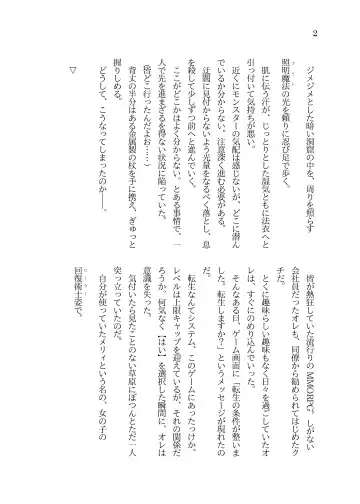 2
ジメジメとした暗い洞窟の中を、周りを照らす
照明魔法の光を頼りに忍び足で歩く。
肌に伝う汗が、じっとりとした湿気ともに法衣へと
引っ付いて気持ちが悪い。
近くにモンスターの気配は感じないが、どこに潜ん
でいるか分からない。注意深く進む必要がある。
迂闊に見付からないよう光量をなるべく落とし、息
を殺して少しずつ前へと進んでいく。
ここがどこかはよく分からない。とある事情で、一
人で先を進まざるを得ない状況に陥っていた。
(皆どこ行ったんだよぉ……)
背丈の半分はある金属製の杖を手に携え、ぎゅっと
握りしめる。
どうして、こうなってしまったのか――。
▽
皆が熱狂していた流行りのMMORPG。しがない
会社員だったオレも、同僚から勧められてはじめたク
チだ。
とくに趣味らしい趣味もなく日々を過ごしていたオ
レは、すぐにのめり込んでいった。
そんなある日、ゲーム画面に「転生の条件が整いま
した。転生しますか？」というメッセージが現れたの
だ。
転生なんてシステム、このゲームにあったっけか。
レベルは上限キャップを迎えているが、それの関係だ
ろうか。何気なく【はい】を選択した瞬間に、オレは
意識を失った。
気付いたら見たことのない草原にぽつんとただ一人
突っ立っていたのだ。
自分が使っていたメリィという名の、女の子の
回復術士姿で。
ヒーラー